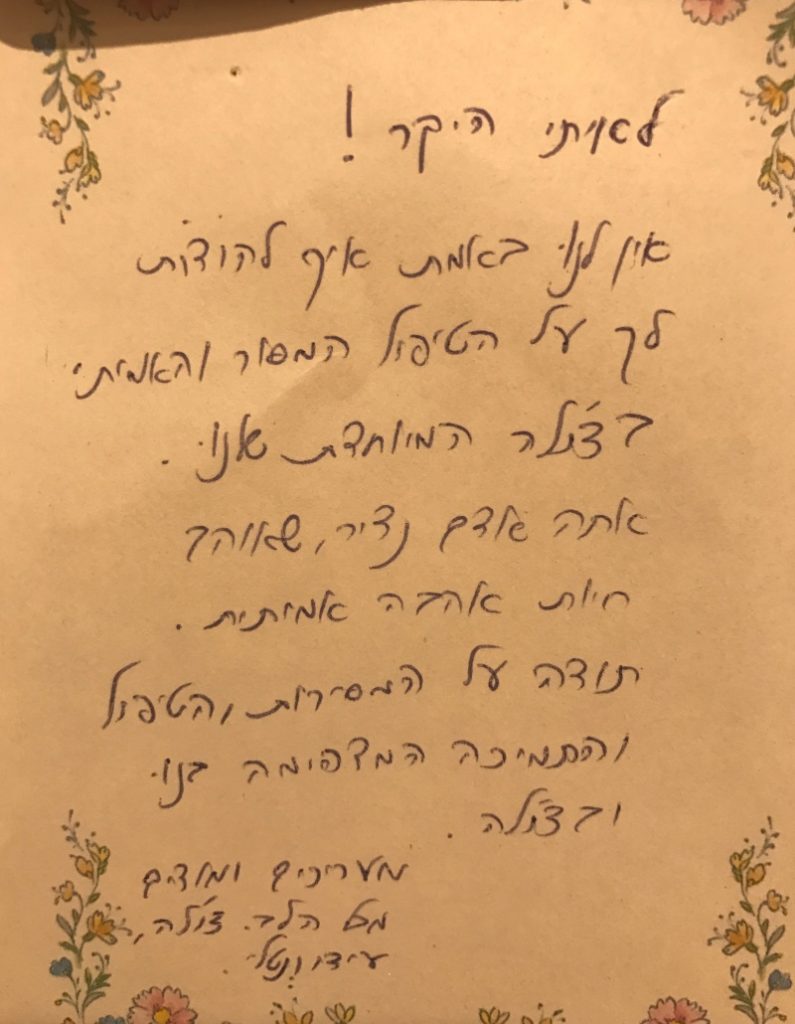 לאיתי היקר!
אין לנו באמת איך להודות
לך על הטיפול המסור והאמיתי
בצ'ולה המיוחדת שלנו.
אתה אדם נדיר, שאוהב
חיות אהבה אמיתית.
תודה על המסירות, הטיפול
והתמיכה המדהימה בנו
ובצ'ולה.
מעריכים ומודים
מכל הלב. צ'ולה,
עידו ונטלי.